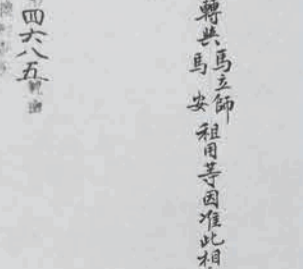 轉與馬立師
馬安祖用等因准此相
四六八五